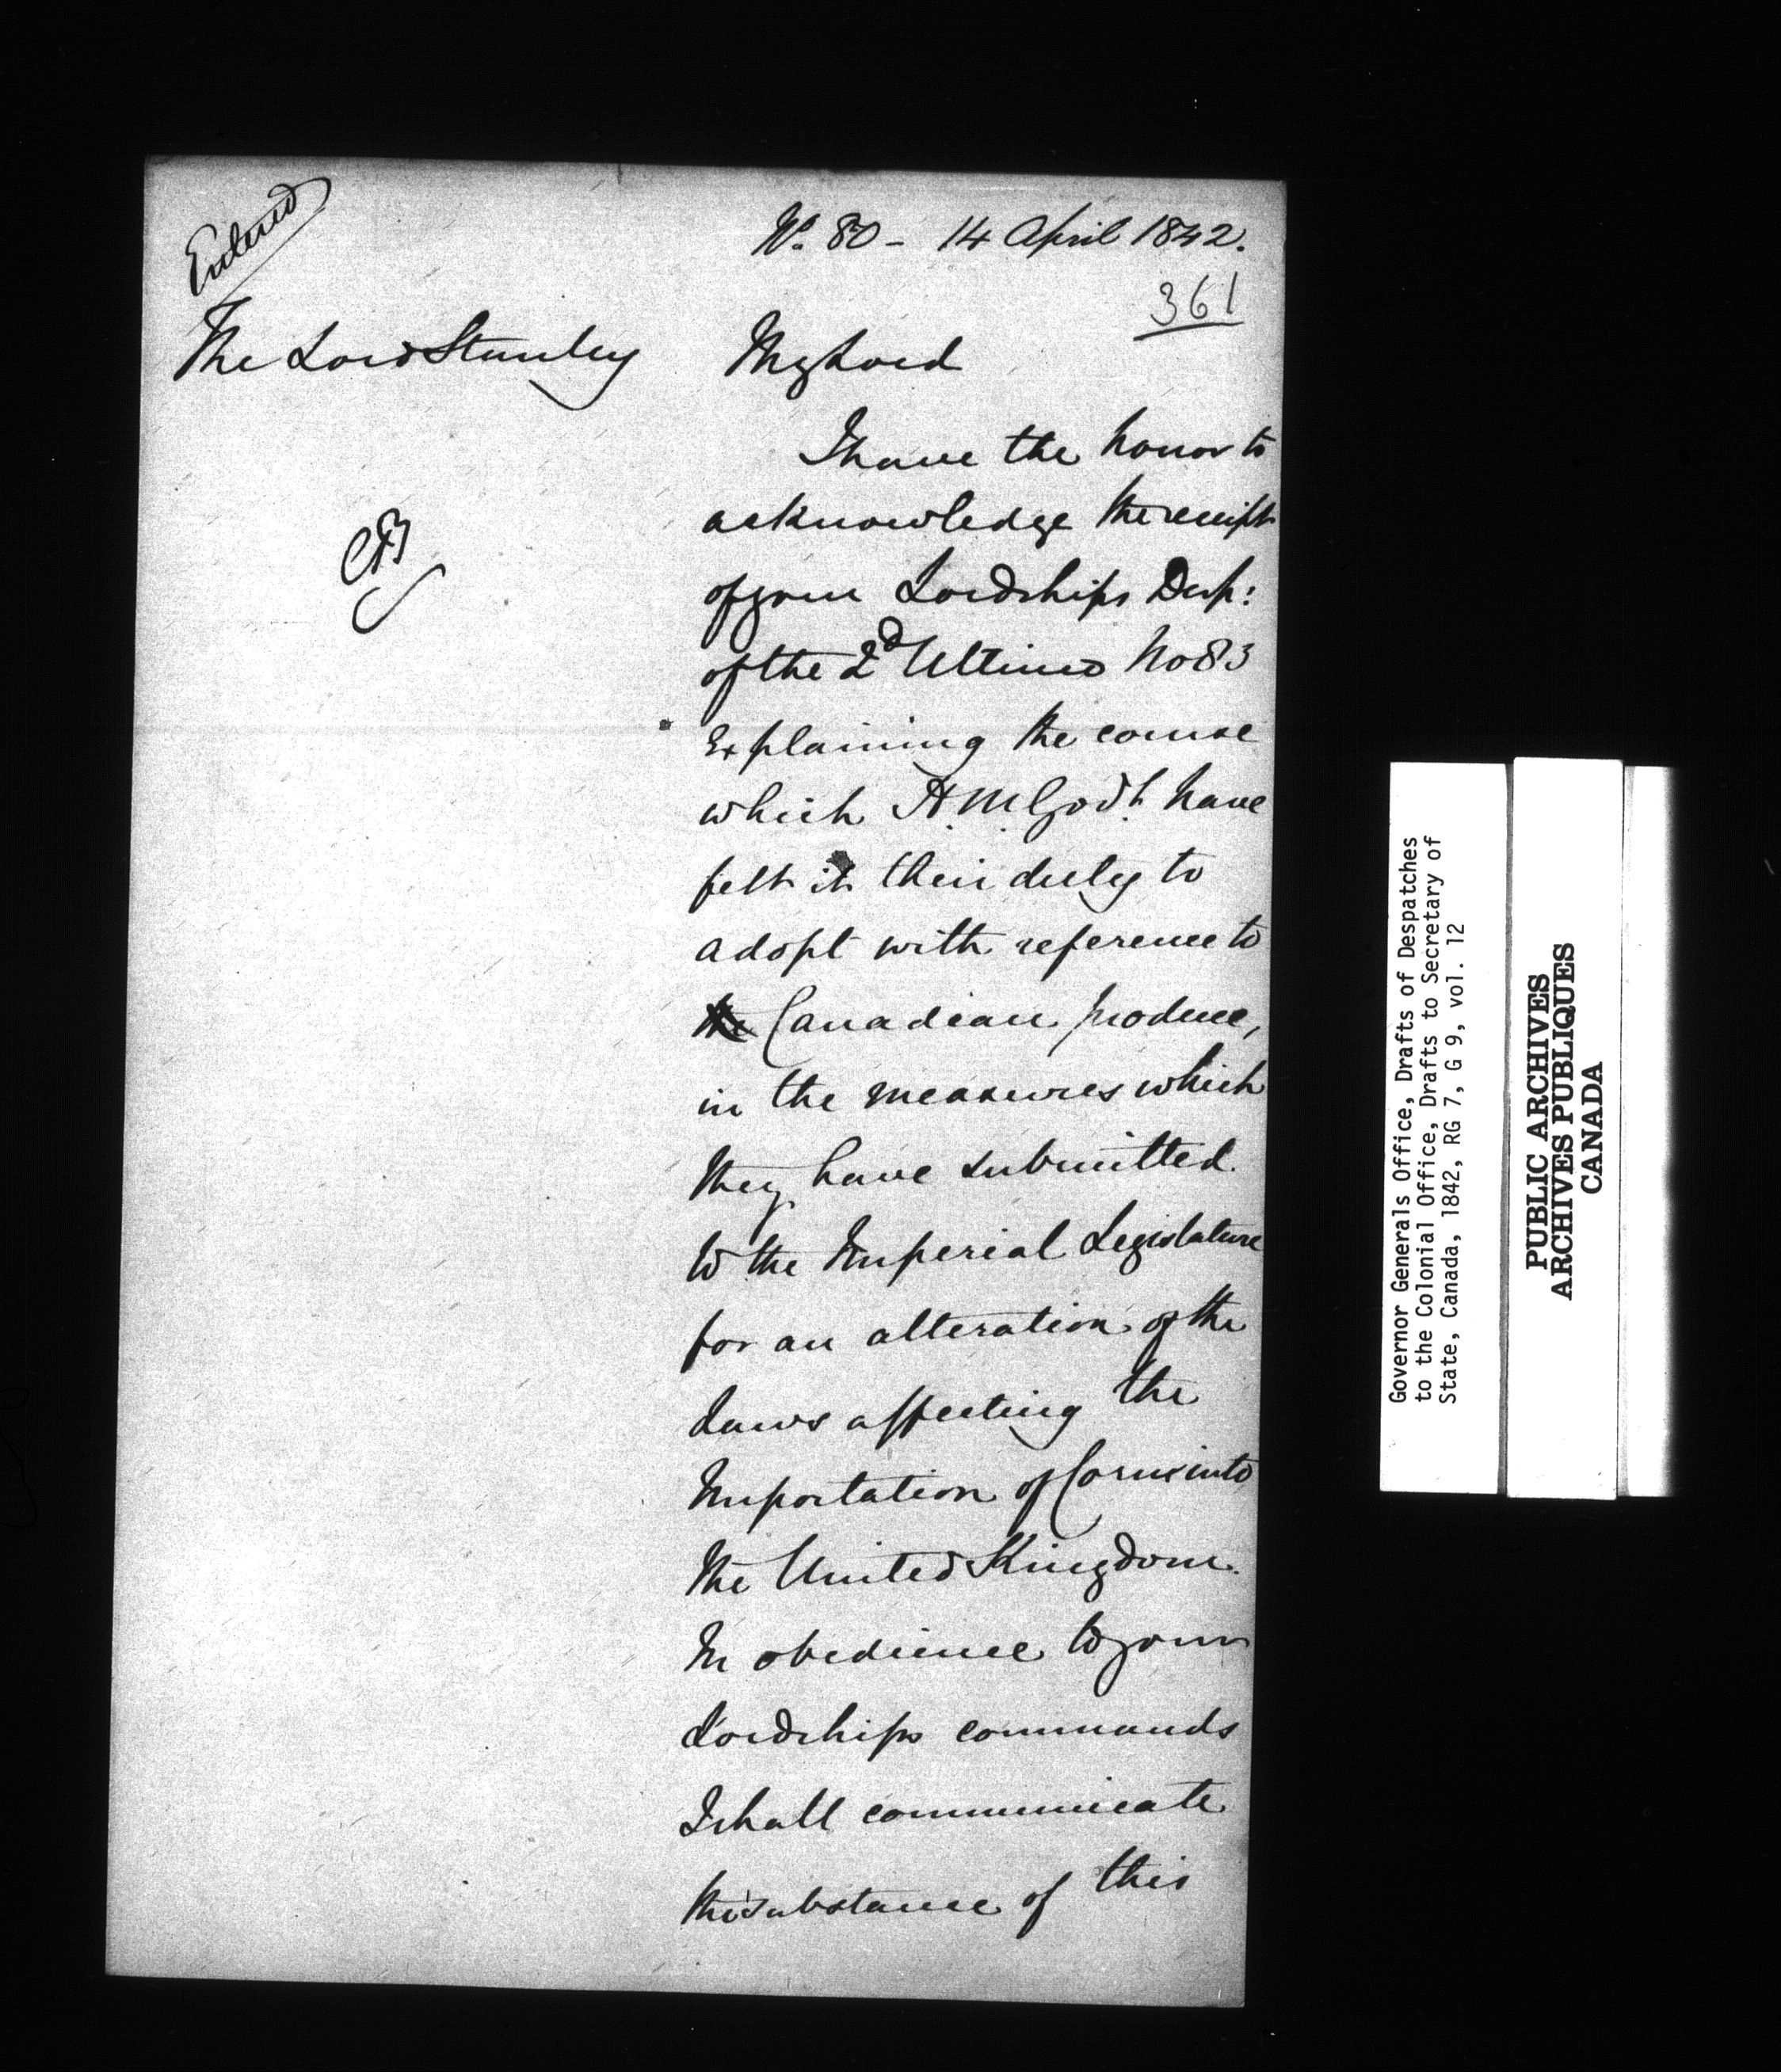 Entered
No. 80 - 14 April 1842.
361
The Lord Stanley
My Lord
I have the honor to
acknowledge the receipt
of your Lordships Desp:
of the 2d Ultimo No 83
Explaining the course
which H.M. Govt. have
felt it their duty to
adopt with reference to
the Canadian produce,
in the measures which
they have submitted
to the Imperial Legislature
for an alteration of the
Laws affecting the
Importation of Corn into
the United Kingdom.
In obedience to your
Lordships commands
I shall communicate
the substance of this
Governor Generals Office, Drafts of Despatches
to the Colonial Office, Drafts to Secretary of
State, Canada, 1842, RG 7, G 9, vol. 12
PUBLIC ARCHIVES
ARCHIVES PUBLIQUES
CANADA